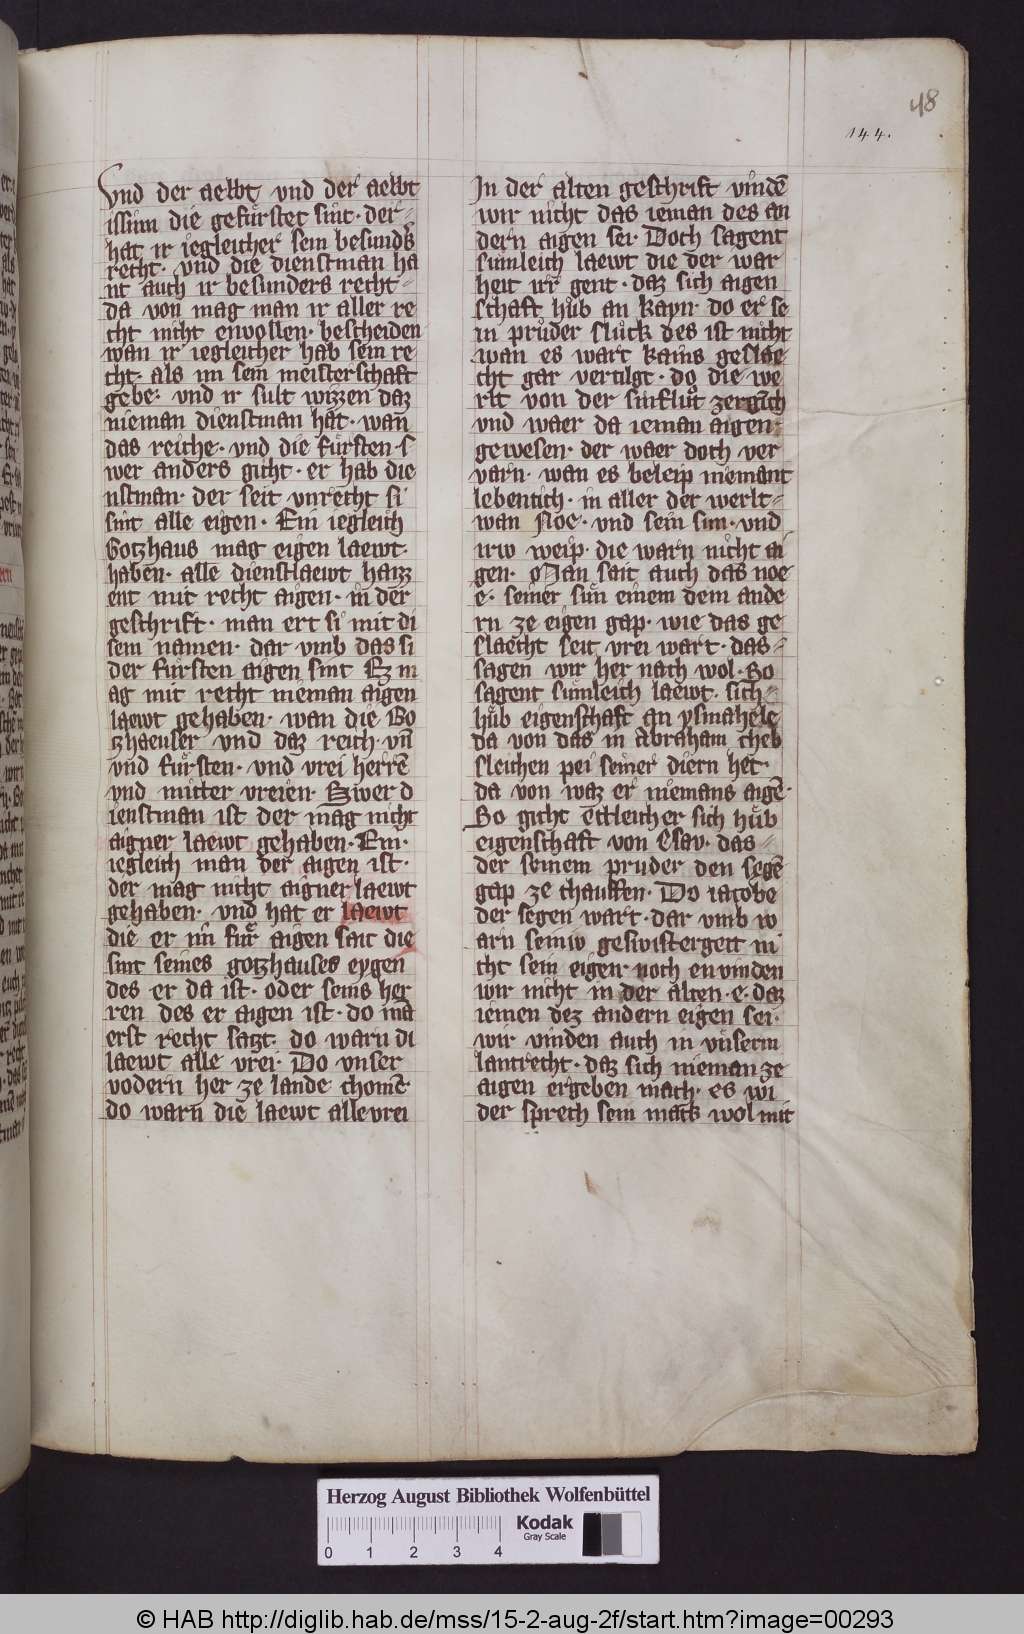 48
144.
Vnd der aebbt vnd der aebbt
issinn die gefuͤrstet sint · der
hat ir iegleicher sein besundˢ
recht · vnd die dienstman ha
nt auch ir besunders recht
da von mag man ir aller re
cht nicht envollen · bescheiden
wan ir iegleicher hab sein re
cht · als im sein meisterschaft
gebe · vnd ir sult wizzen daz
nieman dienstman hat · wan̄
das reiche · vnd die fuͤrsten · s
wer anders gicht · er hab die
nstman · der seit vnrecht si
sint alle eigen · Ein iegleich
Gotzhaus mag eigen laewt ·
haben · alle dienstlaewt haizz
ent mit recht aigen · in der
geschrift · man ert si mit di
sem namen · dar vmb das si
der fuͤrsten aigen sint Ez m
ag mit recht nieman aigen
laewt gehaben · wan die Go
tzhaeuser vnd daz reich · vn̄
vnd fuͤrsten · vnd vrei herrē
vnd mitter vreien · Swer d
ienstman ist der mag nicht
aigner laewt gehaben · Ein
iegleich man der aigen ist ·
der mag nicht aigner laewt
gehaben · vnd hat er laewt
die er im fuͤr aigen sait die
sint seines gotzhauses eygen
des er da ist · oder seins her
ren des er aigen ist · do mā
erst recht satzt · do warn di
laewt alle vrei · Do vnser
vodern her ze lande chomē
do warn die laewt alle vrei
In der alten geschrift vindē
wir nicht das ieman des an
dern aigen sei · Doch sagent
sumleich laewt die der war
heit irr gent · daz sich aigen
schaft huͤb an kayn · do er se
in pruͦder sluͦck des ist nicht
wan es wart kains geslae
cht gar vertilgt · do die we
rlt von der sinfluͦt zergieng
vnd waer da ieman aigen
gewesen · der waer doch ver
varn · wan es beleip niemant
lebentich · in aller der werlt
wan Noe · vnd sein sun · vnd
irw weip · die warn nicht ai
gen · Man sait auch das noe
e · seiner suͤn einem dem ande
rn ze eigen gap · wie das ge
slaecht seit vrei wart · das
sagen wir her nach wol · So
sagent suͤmleich laewt · sich
huͤb eigenschaft an ysmahele
da von das in Abraham cheb
sleichen pei seiner diern het ·
da von waz er niemans aigē ·
So gicht ettleicher sich huͤb
eigenschaft von Esav · das
der seinem pruder den segē
gap ze chauffen · Do iacobe
der segen wart · dar vmb w
arn seiniv geswistergeit ni
cht sein eigen · noch envinden
wir nicht in der alten · e · daz
iemen dez andern eigen sei ·
wir vinden auch in vnserm
lantrecht · daz sich nieman ze
aigen ergeben mach · es wi
der sprech sein mack wol mit
Herzog August Bibliothek Wolfenbüttel
Kodak
Gray Scale
0 1 2 3 4
© HAB http://diglib.hab.de/mss/15-2-aug-2f/start.htm?image=00293